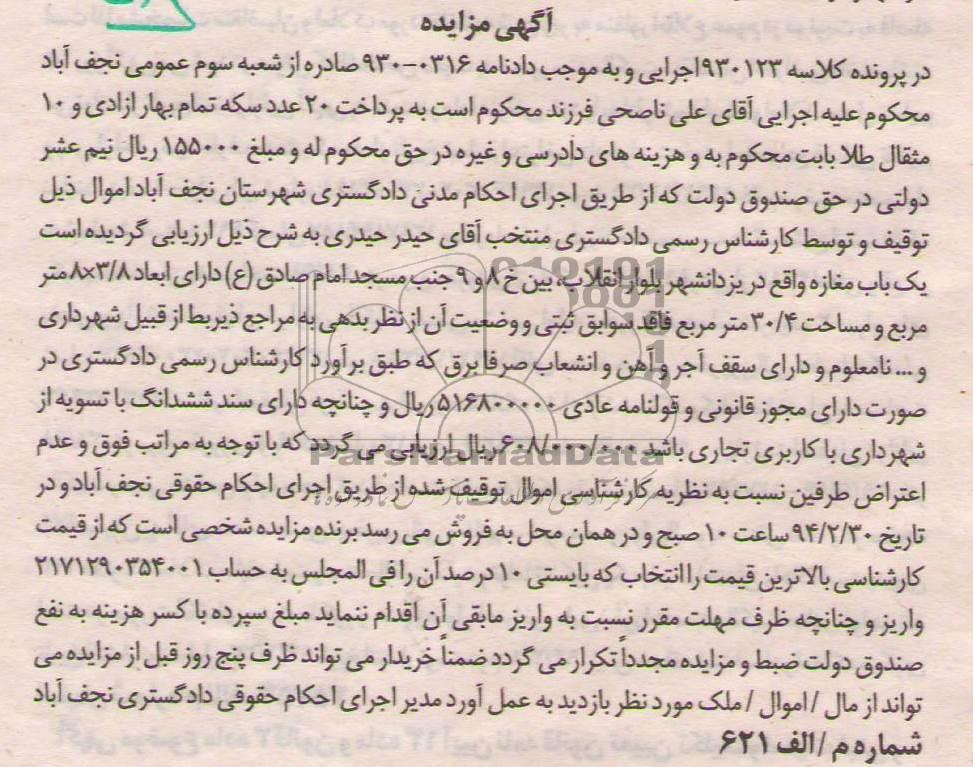 آگهی مزایده
در پرونده کلاسه ۹۳۰۱۲۳اجرایی و به موجب دادنامه ۰۳۱۶-۹۳۰ صادره از شعبه سوم عمومی نجف آباد
محکوم علیه اجرایی آقای علی ناصحی فرزند محکوم است به پرداخت ۲۰ عدد سکه تمام بهار ازادی و ۱۰
مثقال طلا بابت محکوم به و هزینه های دادرسی و غیره در حق محکوم له و مبلغ ۱۵۵۰۰۰ ریال نیم عشر
دولتی در حق صندوق دولت که از طریق اجرای احکام مدنی دادگستری شهرستان نجف آباد اموال ذیل
توقیف و توسط کارشناس رسمی دادگستری منتخب آقای حیدر حیدری به شرح ذیل ارزیابی گردیده است
یک باب مغازه واقع در یزدانشهر بلوار انقلاب، بین خ ۸ و ۹ جنب مسجد امام صادق (ع) دارای ابعاد ۳/۸×۸ متر
مربع و مساحت ۳۰/۴ متر مربع فاقد سوابق ثبتی و وضعیت آن از نظر بدهی به مراجع ذیربط از قبیل شهرداری
و ... نامعلوم و دارای سقف آجر و آهن و انشعاب صرفا برق که طبق برآورد کارشناس رسمی دادگستری در
صورت دارای مجوز قانونی و قولنامه عادی ۵۱۶۸۰۰۰۰۰ ریال و چنانچه دارای سند ششدانگ با تسویه از
شهرداری با کاربری تجاری باشد ۶۰۸/۰۰۰/۰۰۰ریال ارزیابی می گردد که با توجه به مراتب فوق و عدم
اعتراض طرفین نسبت به نظریه کارشناسی اموال توقیف شده از طریق اجرای احکام حقوقی نجف آباد و در
تاریخ ۹۴/۲/۳۰ ساعت ۱۰ صبح و در همان محل به فروش می رسد برنده مزایده شخصی است که از قیمت
کارشناسی بالاترین قیمت را انتخاب که بایستی ۱۰ درصد آن را فی المجلس به حساب ۲۱۷۱۲۹۰۳۵۴۰۰۱
واریز و چنانچه ظرف مهلت مقرر نسبت به واریز مابقی آن اقدام ننماید مبلغ سپرده با کسر هزینه به نفع
صندوق دولت ضبط و مزایده مجدداً تکرار می گردد ضمناً خریدار می تواند ظرف پنج روز قبل از مزایده می
تواند از مال / اموال / ملک مورد نظر بازدید به عمل آورد مدیر اجرای احکام حقوقی دادگستری نجف آباد
شماره م / الف ۶۲۱
ParsNamadData